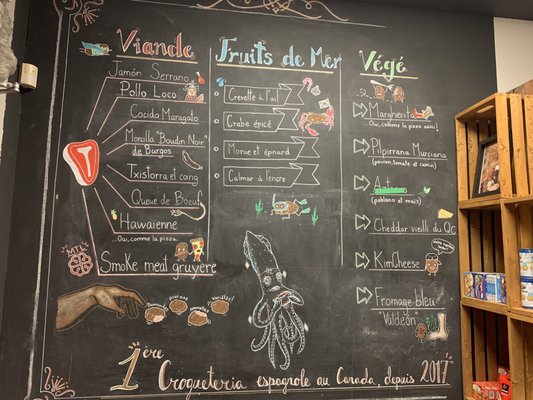 Viande
Jamón Serrano
Pollo Loco
Cocida Maragata
Morcilla "Boudin Noir"
de Burgos
Txistorra el cariq
Queue de Boeuf
Hawaïenne
...Oui, comme la pizza
MTL
Smoke meat gruyère
Fruits de Mer
Crevette à l'ail
Crabe épicé
Morue et épinard
Calmar à l'encre
Végé
Margherita
Oui, comme la pizza aussi!
Pilpirrana Murciana
(poivron, tomate et cumin)
(poblano et maïs)
Cheddar vieilli du Qc
KimCheese
Fromage bleu
"Valdeón"
1ère
Croqueteria espagnole au Canada, depuis 2017